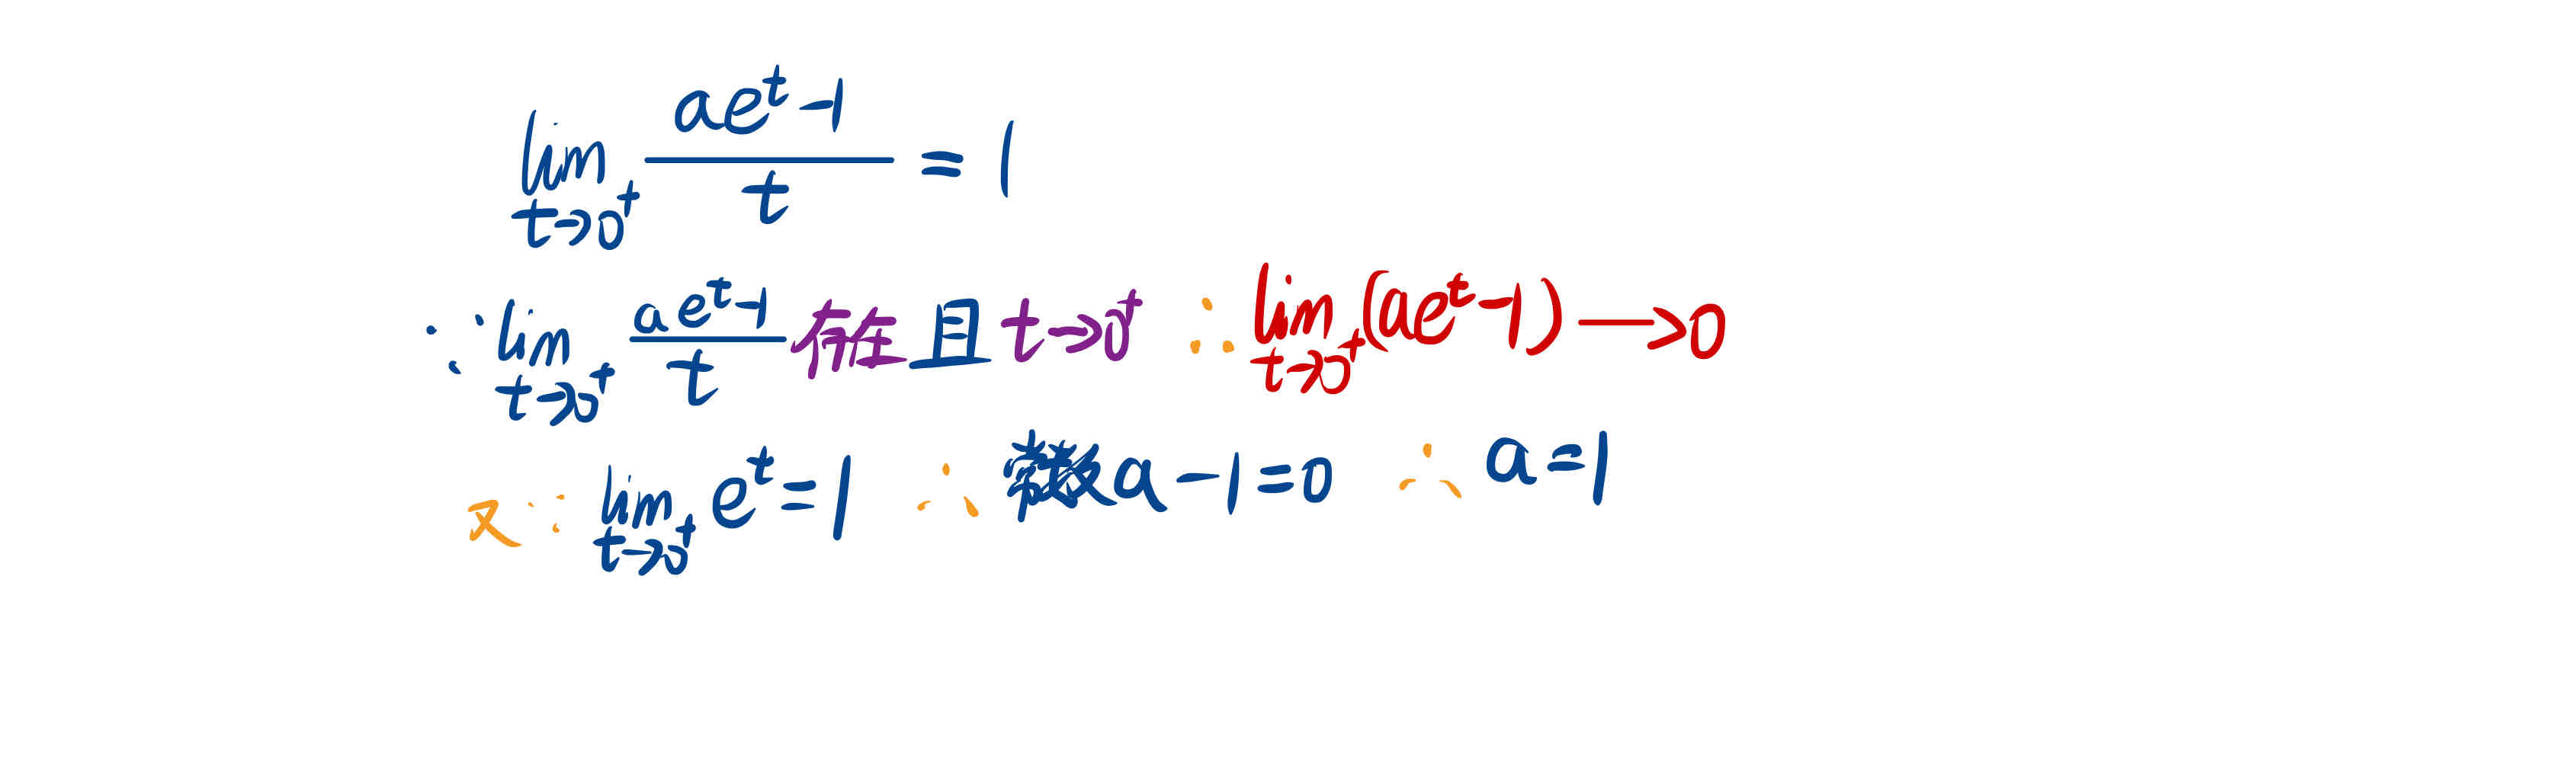 lim_{t→0⁺} (ae^t-1)/t = 1
∵ lim_{t→0⁺} (ae^t-1)/t 存在且 t→0⁺ ∴ lim_{t→0⁺} (ae^t-1) → 0
又∵ lim_{t→0⁺} e^t = 1 ∴ a-1=0 ∴ a=1